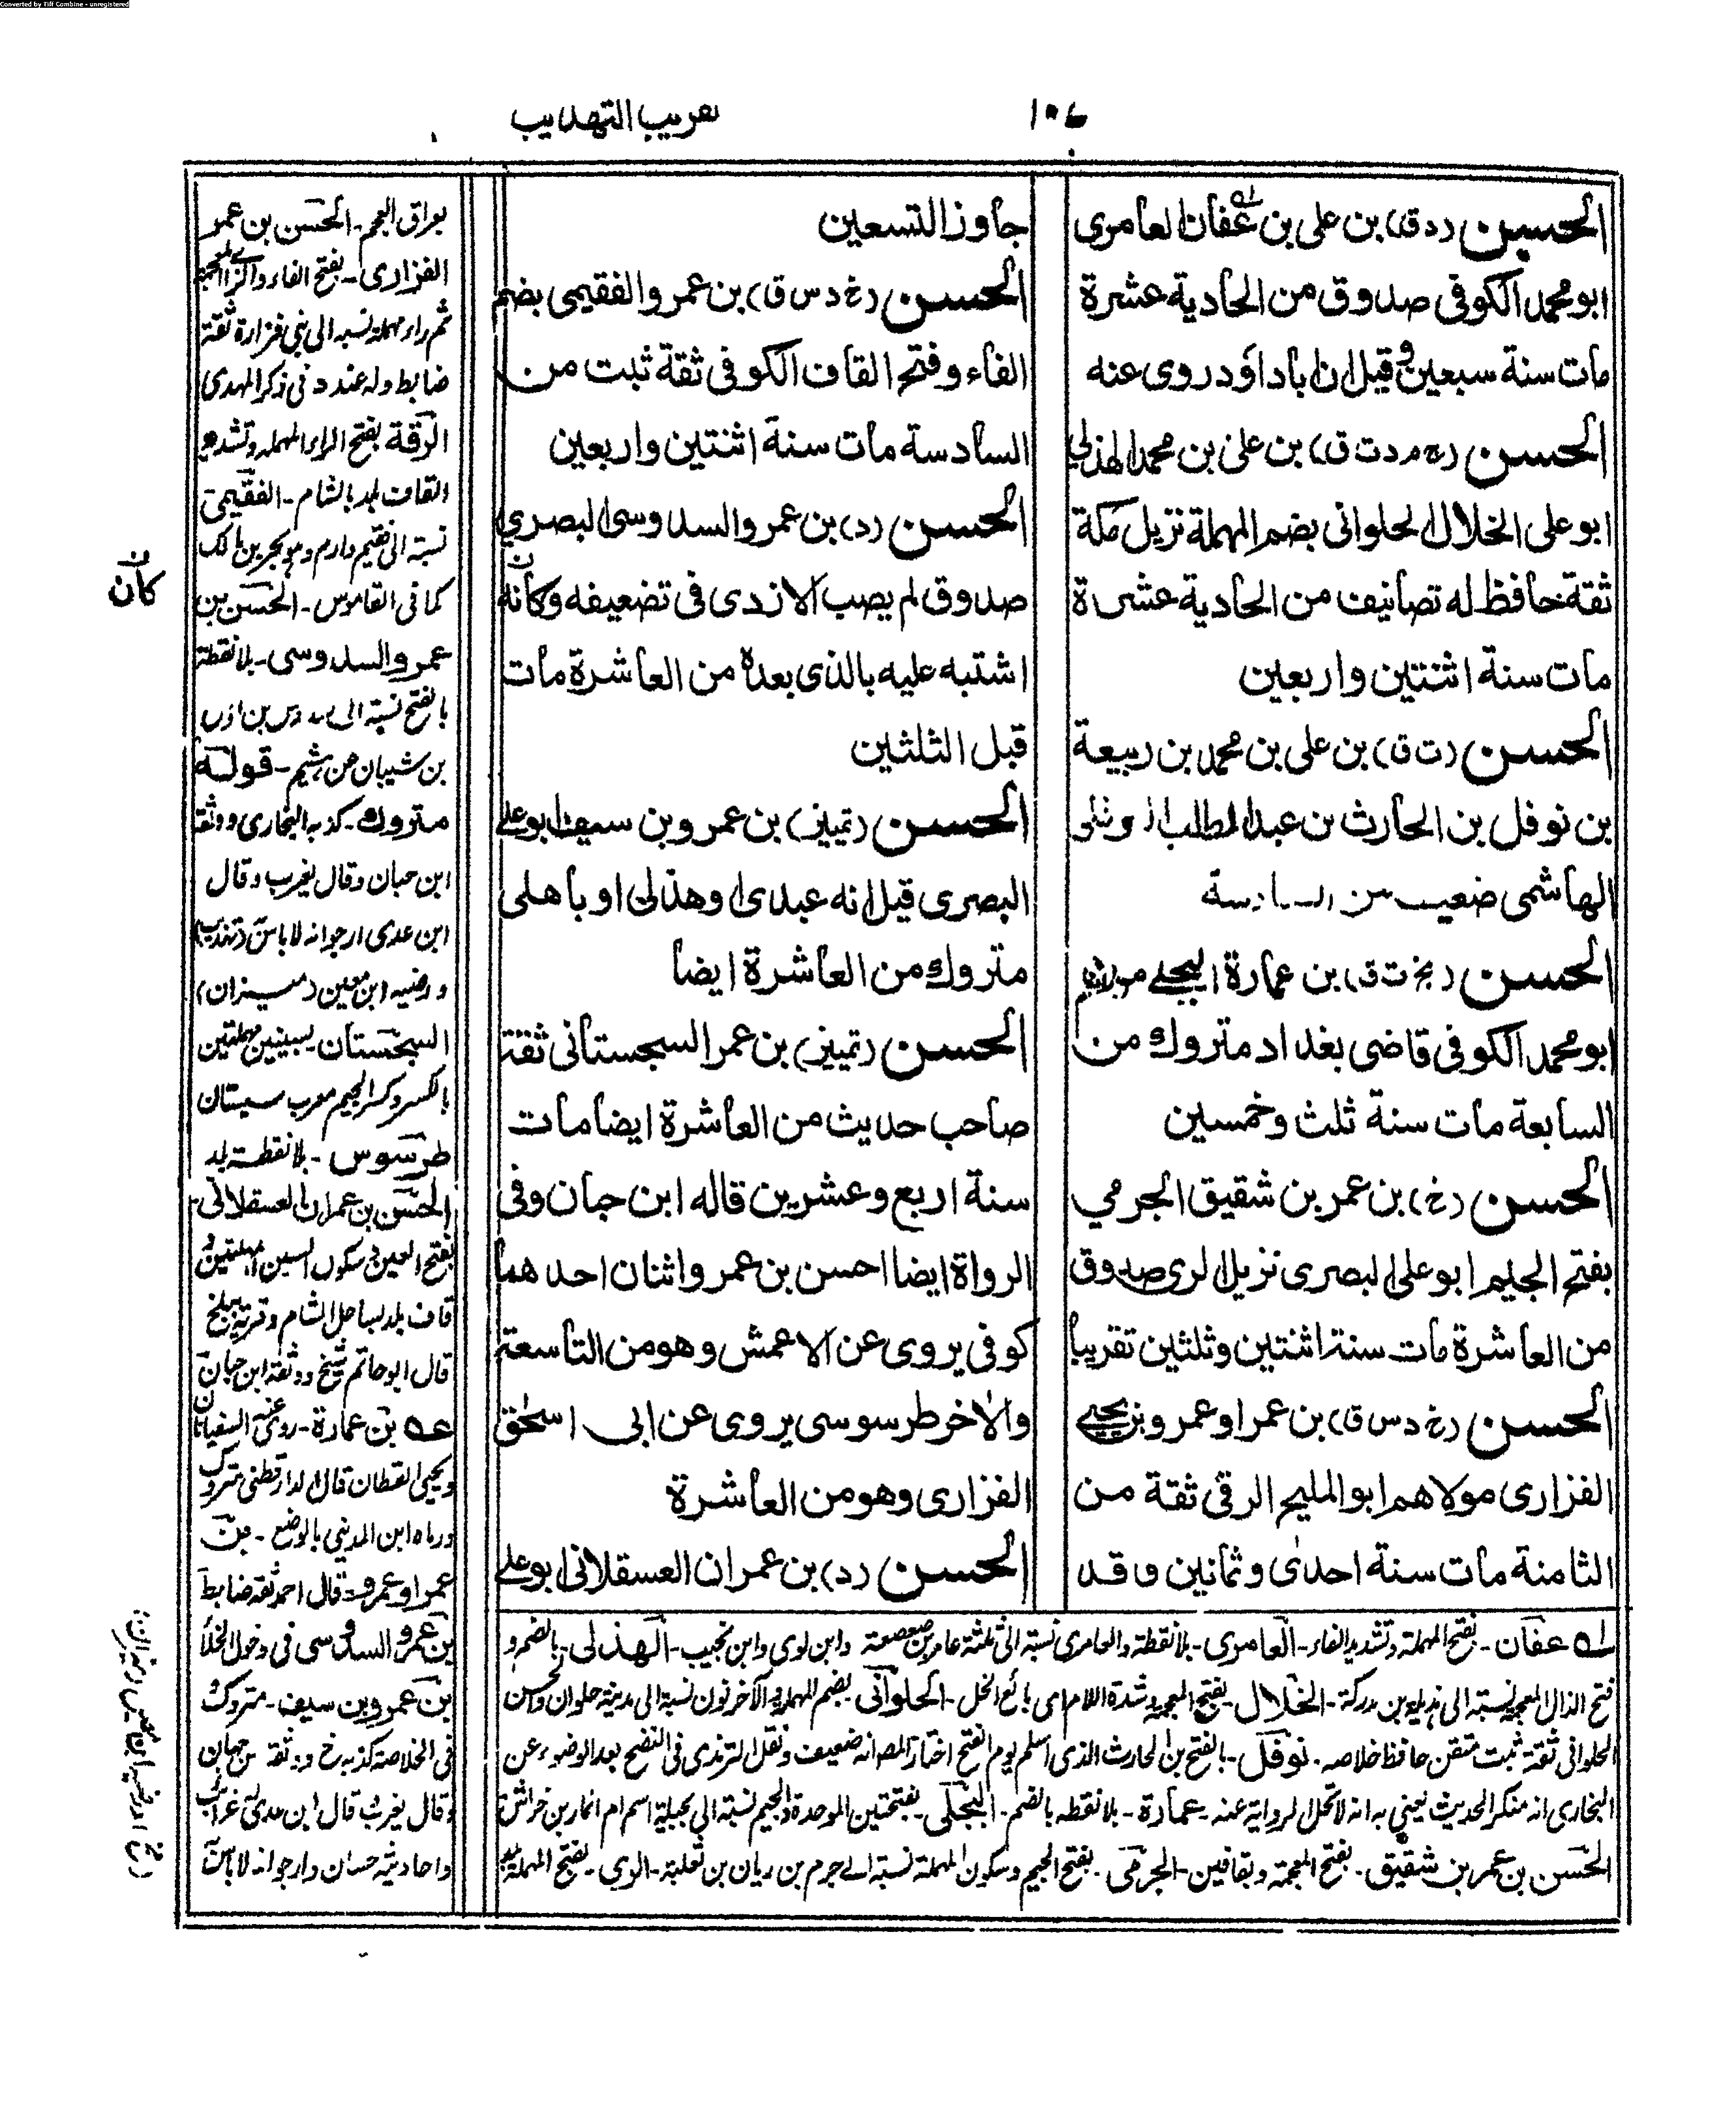 Converted by Tiff Combine - unregistered
تقريب التهذيب
١٠٦
الحسين (د ق) بن على بن عفان العامرى
ابو محمد الكوفى صدوق من الحادية عشرة
مات سنة سبعين وقيل ان ابا داؤد روى عنه
الحسن (خ م د ت ق) بن على بن محمد الهذلي
ابو على الخلال الحلوانى بضم المهملة نزيل مكة
ثقة حافظ له تصانيف من الحادية عشرة
مات سنة اثنتين واربعين
الحسن (ت ق) بن على بن محمد بن ربيعة
بن نوفل بن الحارث بن عبد المطلب النوفلى
الهاشمى ضعيف من السادسة
الحسن (خت ت ق) بن عمارة البجلے مولاهم
ابو محمد الكوفى قاضى بغداد متروك من
السابعة مات سنة ثلث وخمسين
الحسن (خ) بن عمر بن شقيق الجرمي
بفتح الجيم ابو على البصرى نزيل الرى صدوق
من العاشرة مات سنة اثنتين وثلثين تقريبا
الحسن (خ د س ق) بن عمر او عمرو بن يحيے
الفزارى مولاهم ابو المليح الرقى ثقة من
الثامنة مات سنة احدى وثمانين وقد
جاوز التسعين
الحسن (خ د س ق) بن عمرو الفقيمى بضم
الفاء وفتح القاف الكوفى ثقة ثبت من
السادسة مات سنة اثنتين واربعين
الحسن (د) بن عمرو السدوسى البصري
صدوق لم يصب الازدى فى تضعيفه وكأنه
اشتبه عليه بالذى بعده من العاشرة مات
قبل الثلثين
الحسن (تمييز) بن عمرو بن سيف ابو على
البصرى قيل انه عبدى او هذلى او باهلى
متروك من العاشرة ايضا
الحسن (تمييز) بن عمر السجستانى ثقة
صاحب حديث من العاشرة ايضا مات
سنة اربع وعشرين قاله ابن حبان وفى
الرواة ايضا احسن بن عمرو اثنان احدهما
كوفى يروى عن الاعمش وهو من التاسعة
والاخر طرسوسى يروى عن ابى اسحٰق
الفزارى وهو من العاشرة
الحسن (د) بن عمران العسقلانى ابو على
عفان - بفتح المهملة وتشديد الفاء - العامرى - بلا نقطة والعامرى نسبة الى ثلثة عامر بن صعصعة وابن لوى وابن نجيب - الهذلى - بالضم و
فتح الذال المعجمة نسبة الى هذيل بن مدركة - الخلال - بفتح المعجمة وشدة اللام اى بائع الخل - الحلوانى بضم المهملة والآخر نون نسبة الى مدينة حلوان والحسن
الحلوانى ثقة ثبت متقن حافظ خلاصه - نوفل - بالفتح بن الحارث الذى اسلم يوم الفتح اختار المص انه ضعيف ونقل الترمذى فى النضح بعد الوضوء عن
البخارى انه منكر الحديث يعنى به انه لا تحل الرواية عنه - عمارة - بلا نقطه بالضم - البجلى - بفتحتين الموحدة والجيم نسبة الى بجيلة اسم ام انمار بن خراش
الحسن بن عمر بن شقيق - بفتح المعجمة وبقافين - الجرمى - بفتح الجيم وسكون المهملة نسبة الے جرم بن ريان بن ثعلبة - الرى - بفتح المهملة بلد
بعراق العجم - الحسن بن عمر
الفزارى - بفتح الفاء والزاء المعجمة
ثم راء مهملة نسبه الى بنى فزارة ثقة
ضابط وله عند د فى ذكر المهدى
الرقة بفتح الراء المهمله وتشديد
القاف بلد بالشام - الفقيمى
نسبة الى فقيم دارم وهو بحر بن مالك
كما فى القاموس - الحسن بن
عمرو السدوسى - بلا نقطة
بالفتح نسبة الى سدوس بن
بن شيبان - قوله
متروك - كذبه البخارى ووثقه
ابن حبان وقال يغرب وقال
ابن عدى ارجو انه لا باس (تهذيب)
ورضيه ابن معين (ميزان)
السجستان - بسينين مهملتين
بالكسر وكسر الجيم معرب سيستان
طرسوس - بلا نقطة بلد
الحسن بن عمران العسقلانى -
بفتح العين وسكون السين المهملتين
قاف بلد بساحل الشام وقرية ببلخ
قال ابو حاتم شيخ ووثقه ابن حبان
عه بن عمارة - روى عنه السفيانان
ويحيى القطان قال الدارقطنى متروك
ورماه ابن المدينى بالوضع - بن
عمر او عمرو - قال احمد ثقة ضابط
بن عمرو السدوسى فى دخول الخلا
بن عمرو بن سيف - متروك
فى الخلاصه كذبه خ ووثقه بن حبان
وقال يغرب قال ابن عدى غرائب
واحاديثه حسان وارجو انه لا باس
كان